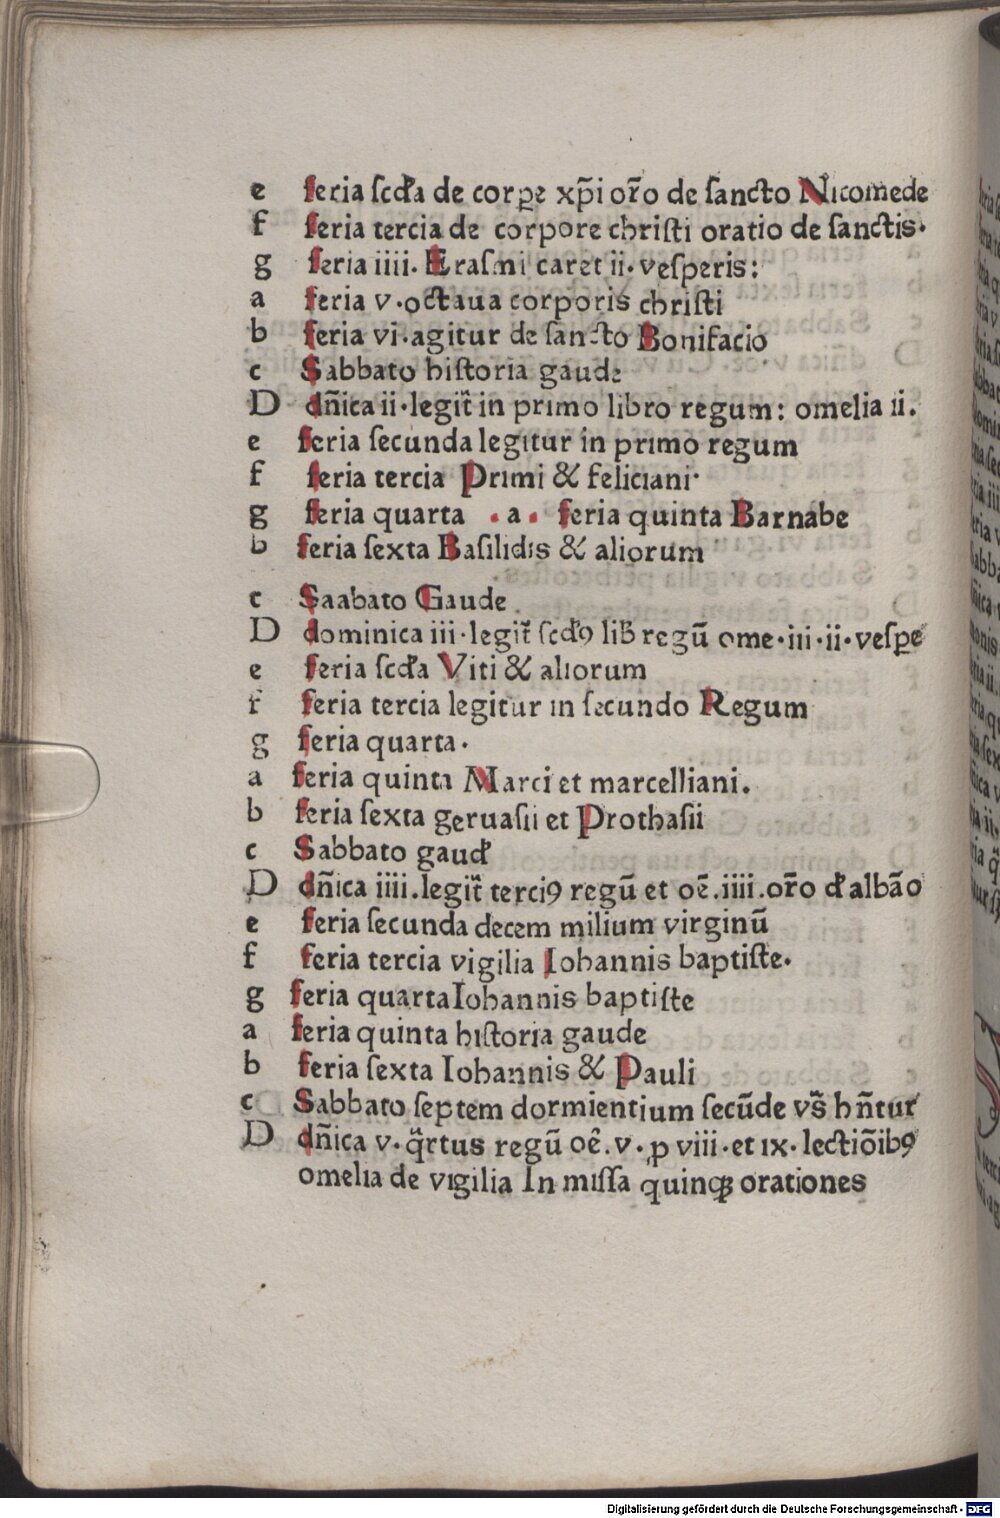 e feria ſcd̓a de corꝑe xp̄i or̄o de ſancto Nicomede
f feria tercia de corpore chriſti oratio de ſanctis·
g feria iiii· Eraſmi caret ii· veſperis:
a feria v·octaua corporis chriſti
b feria vi·agitur de ſancto Bonifacio
c Sabbato hiſtoria gaude
D dn̄ica ii·legit᷑ in primo libro regum: omelia ii.
e feria ſecunda legitur in primo regum
f feria tercia Primi & feliciani·
g feria quarta .a. feria quinta Barnabe
b feria ſexta Baſilidis & aliorum
c Saabato Gaude
D dominica iii·legit᷑ ſcd̓ꝯ lib̄ regū ome·iii·ii·veſꝑe
e feria ſcd̓a Viti & aliorum
f feria tercia legitur in ſecundo Regum
g feria quarta·
a feria quinta Marci et marcelliani.
b feria ſexta geruaſii et Prothaſii
c Sabbato gaud̓
D dn̄ica iiii.legit᷑ terciꝯ regū et oē.iiii.or̄o d̓ albāo
e feria ſecunda decem milium virginū
f feria tercia vigilia Iohannis baptiſte·
g feria quartaIohannis baptiſte
a feria quinta hiſtoria gaude
b feria ſexta Iohannis & Pauli
c Sabbato ſeptem dormientium ſecūde vs̄ hn̄tur
D dn̄ica v· q̄rtus regū oē.v·ꝓ viii·et ix·lectiōibꝯ
omelia de vigilia In miſſa quinqꝫ orationes
Digitalisierung gefördert durch die Deutsche Forschungsgemeinschaft - DFG